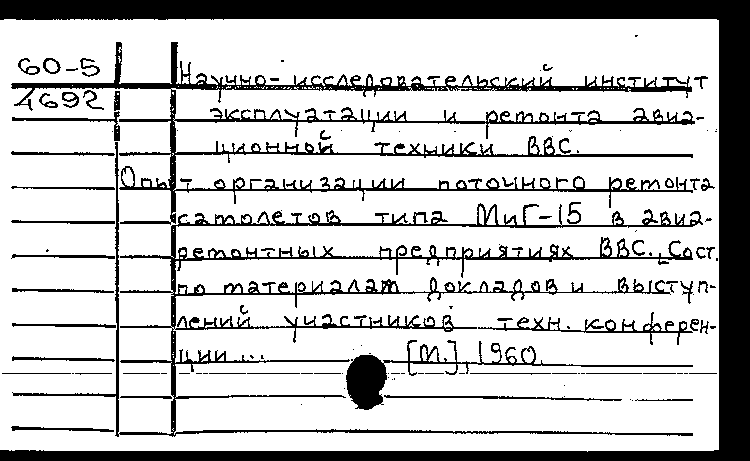 60-5
4692
Научно-исследовательский институт
эксплуатации и ремонта авиа-
ционной техники ВВС.
Опыт организации поточного ремонта
самолетов типа МиГ-15 в авиа-
ремонтных предприятиях ВВС. [Сост.
по материалам докладов и выступ-
лений участников техн. конферен-
ции... [М.], 1960.